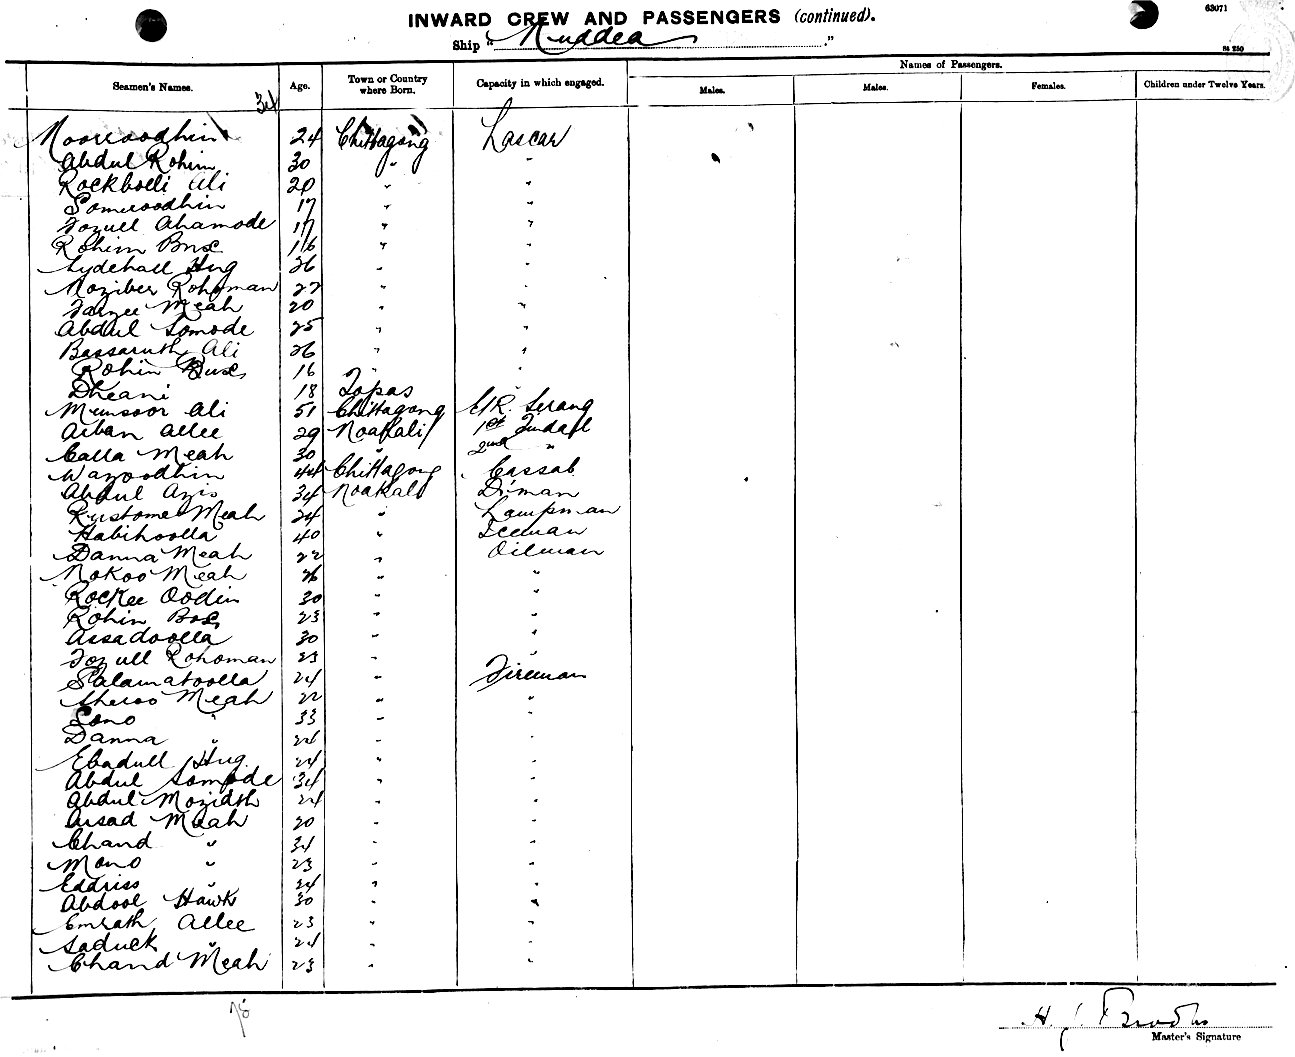 63071
INWARD CREW AND PASSENGERS (continued).
Ship "Nuddea"
Names of Passengers.
Seamen's Names. Age. Town or Country where Born. Capacity in which engaged. Males. Males. Females. Children under Twelve Years.
34
Nooroodhin 24 Chittagong Lascar
Abdul Rohim 30 " "
Rockbolli Ali 20 " "
Someroodhin 17 " "
Fozull Ahamode 17 " "
Rohim Bux 16 " "
Sydehall Hug 26 " "
Moziber Rohoman 22 " "
Meah 20 " "
Abdul Somode 25 " "
Bassaruth Ali 26 " "
Rohin Bux 16 " "
Dheani 18 Topas "
Munsoor Ali 51 Chittagong E/R. Serang
Arban Allee 29 Noakali 1st Tindall
Calla Meah 30 " 2nd "
Wazoodhin 44 Chittagong Cassab
Abdul Azis 34 Noakali D'man
Rustome Meah 24 " Lampman
Habihoolla 40 " Iceman
Danna Meah 22 " Oilman
Nokoo Meah 26 " "
Rockee Oodin 30 " "
Rohin Box 23 " "
Assadoolla 30 " "
Fozull Rohoman 23 " "
Salamatoolla 24 " Fireman
Sheroo Meah 22 " "
Sono " 33 " "
Danna " 24 " "
Ebadull Hug 24 " "
Abdul Somode 34 " "
Abdul Mozidth 24 " "
Arsad Meah 20 " "
Chand " 34 " "
Mono " 23 " "
Eddriss " 24 " "
Abdool Hawk 30 " "
Emrath Allee 23 " "
Saduck " 24 " "
Chand Meah 23 " "
78
H. J. Brooks
Master's Signature